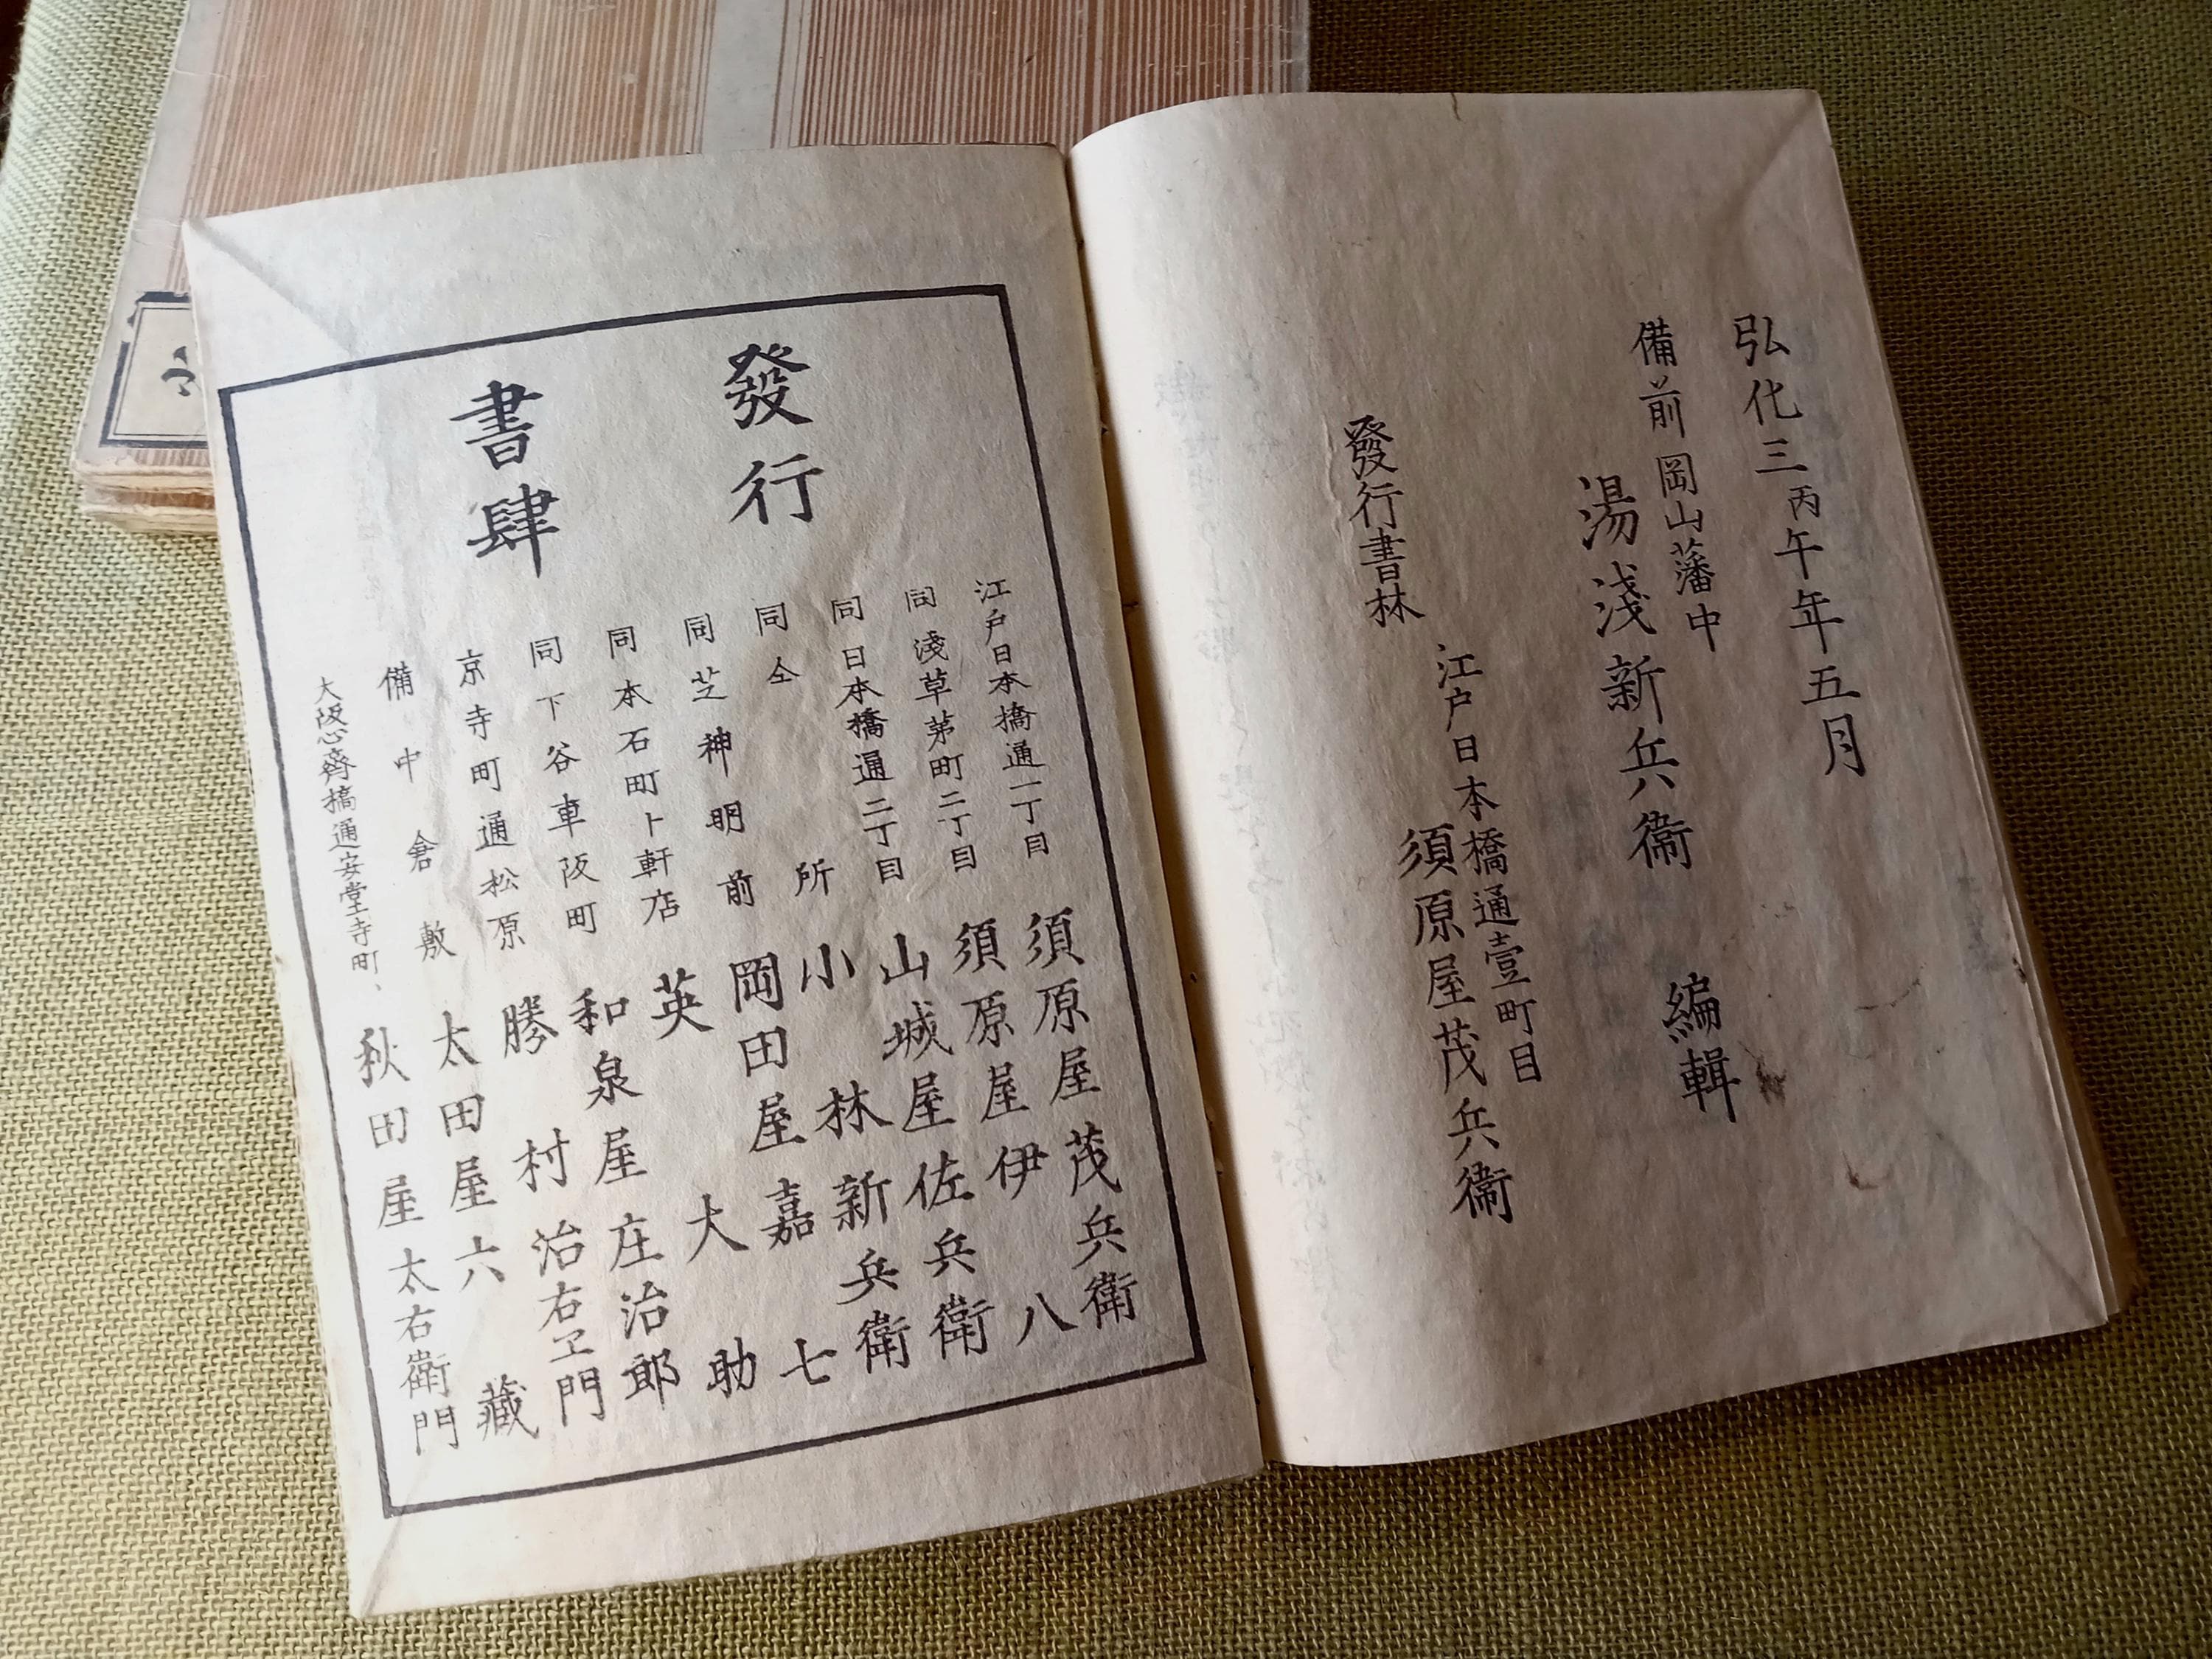 弘化三丙午年五月
備前岡山藩中
湯淺新兵衞　編輯
發行書林
江戸日本橋通壹町目
須原屋茂兵衞
發行
書肆
江戸日本橋通一丁目　須原屋茂兵衛
同淺草茅町二丁目　須原屋伊八
同日本橋通二丁目　山城屋佐兵衛
同仝所　小林新兵衛
同芝神明前　岡田屋嘉七
同本石町ト軒店　英大助
同下谷車阪町　和泉屋庄治郎
京寺町通松原　勝村治右ヱ門
備中倉敷　太田屋六藏
大阪心齋橋通安堂寺町、秋田屋太右衛門